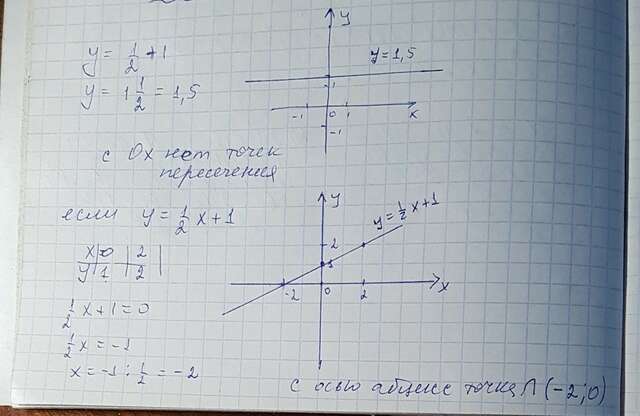 y = 1/2 + 1
y = 1 1/2 = 1,5
y
y=1,5
1
-1 0 1 x
-1
с Ox нет точек
пересечения
если y = 1/2 x + 1
x 0 2
y 1 2
y
y = 1/2 x + 1
2
1
-2 0 2 x
1/2 x + 1 = 0
1/2 x = -1
x = -1 : 1/2 = -2
с осью абцисс точка ∩ (-2; 0)